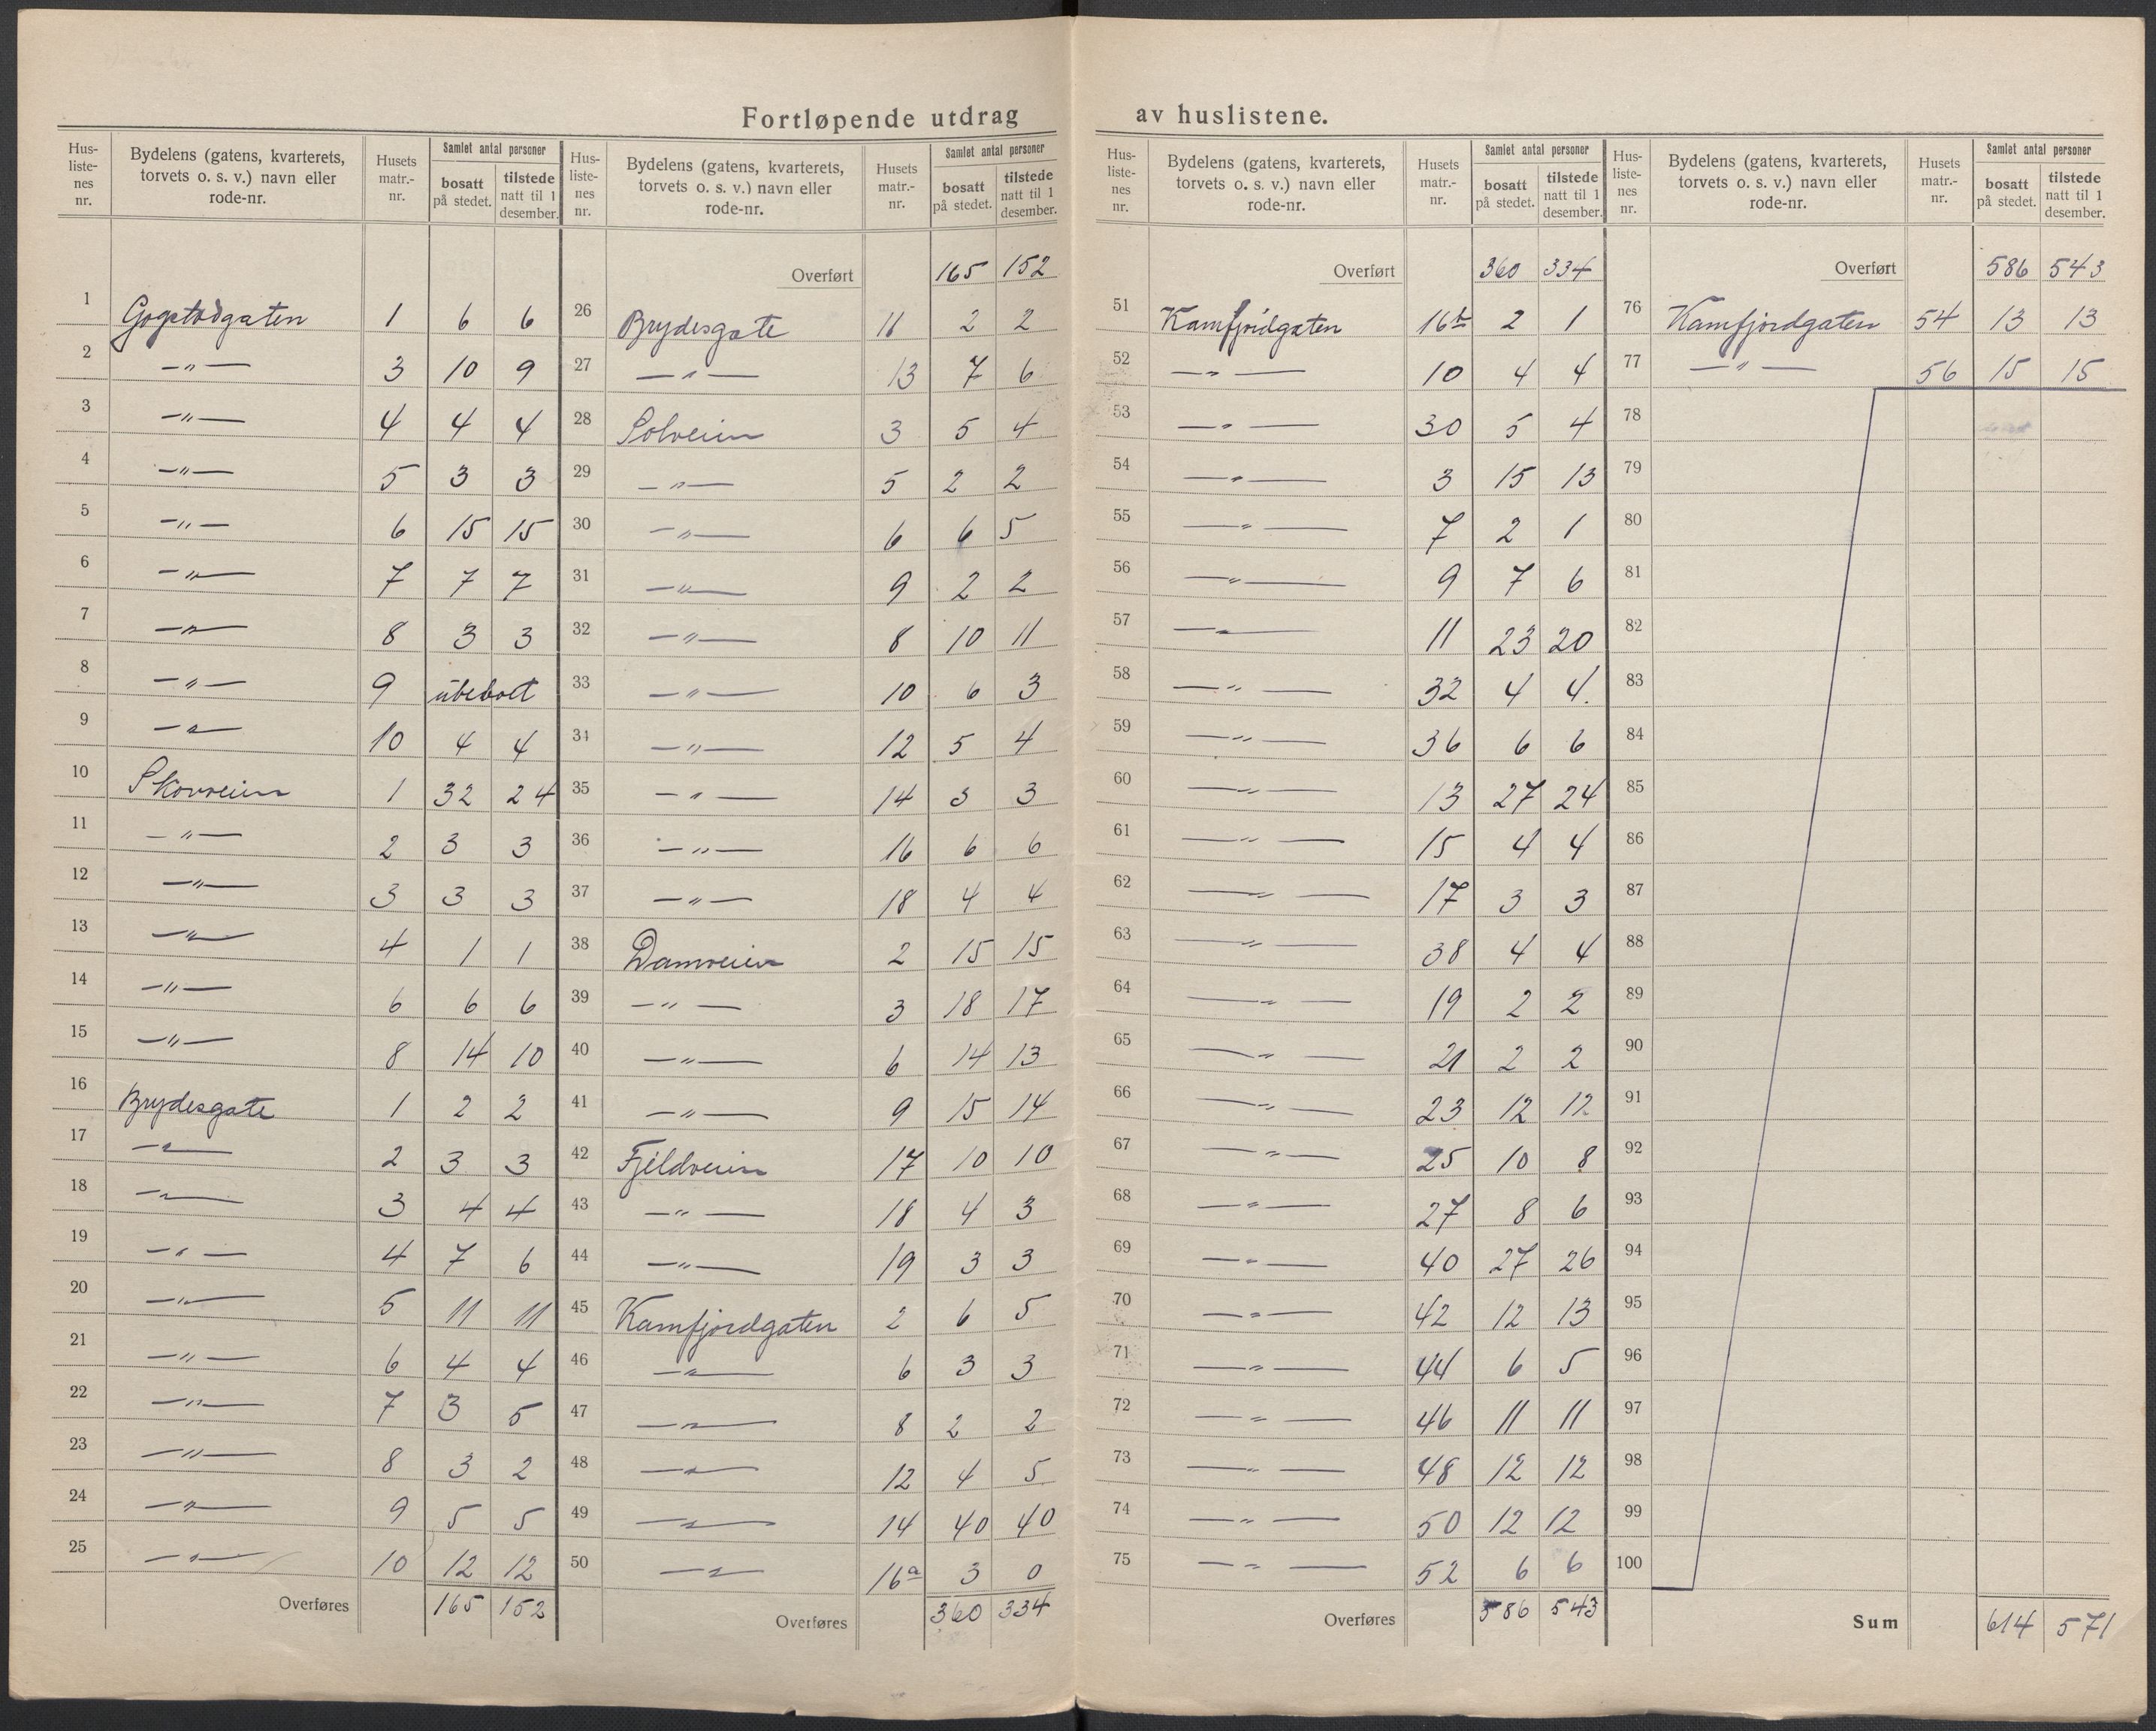 Fortløpende utdrag av huslistene.
Hus-listenes nr. | Bydelens (gatens, kvarterets, torvets o. s. v.) navn eller rode-nr. | Husets matr.-nr. | Samlet antal personer | bosatt på stedet. | tilstede natt til 1 desember.
1 Gogstadgaten 1 6 6
2 —„— 3 10 9
3 —„— 4 4 4
4 —„— 5 3 3
5 —„— 6 15 15
6 —„— 7 7 7
7 —„— 8 3 3
8 —„— 9 ubebodt
9 —„— 10 4 4
10 Skovveien 1 32 24
11 —„— 2 3 3
12 —„— 3 3 3
13 —„— 4 1 1
14 —„— 6 6 6
15 —„— 8 14 10
16 Brydesgate 1 2 2
17 —„— 2 3 3
18 —„— 3 4 4
19 —„— 4 7 6
20 —„— 5 11 11
21 —„— 6 4 4
22 —„— 7 3 5
23 —„— 8 3 2
24 —„— 9 5 5
25 —„— 10 12 12
Overføres 165 152
Hus-listenes nr. | Bydelens (gatens, kvarterets, torvets o. s. v.) navn eller rode-nr. | Husets matr.-nr. | Samlet antal personer | bosatt på stedet. | tilstede natt til 1 desember.
Overført 165 152
26 Brydesgate 11 2 2
27 —„— 13 7 6
28 Solveien 3 5 4
29 —„— 5 2 2
30 —„— 6 6 5
31 —„— 9 2 2
32 —„— 8 10 11
33 —„— 10 6 3
34 —„— 12 5 4
35 —„— 14 3 3
36 —„— 16 6 6
37 —„— 18 4 4
38 Damveien 2 15 15
39 —„— 3 18 17
40 —„— 6 14 13
41 —„— 9 15 14
42 Fjeldveien 17 10 10
43 —„— 18 4 3
44 —„— 19 3 3
45 Kamfjordgaten 2 6 5
46 —„— 6 3 3
47 —„— 8 2 2
48 —„— 12 4 5
49 —„— 14 40 40
50 —„— 16a 3 0
Overføres 360 334
Hus-listenes nr. | Bydelens (gatens, kvarterets, torvets o. s. v.) navn eller rode-nr. | Husets matr.-nr. | Samlet antal personer | bosatt på stedet. | tilstede natt til 1 desember.
Overført 360 334
51 Kamfjordgaten 16b 2 1
52 —„— 10 4 4
53 —„— 30 5 4
54 —„— 3 15 13
55 —„— 7 2 1
56 —„— 9 7 6
57 —„— 11 23 20
58 —„— 32 4 4.
59 —„— 36 6 6
60 —„— 13 27 24
61 —„— 15 4 4
62 —„— 17 3 3
63 —„— 38 4 4
64 —„— 19 2 2
65 —„— 21 2 2
66 —„— 23 12 12
67 —„— 25 10 8
68 —„— 27 8 6
69 —„— 40 27 26
70 —„— 42 12 13
71 —„— 44 6 5
72 —„— 46 11 11
73 —„— 48 12 12
74 —„— 50 12 12
75 —„— 52 6 6
Overføres 586 543
Hus-listenes nr. | Bydelens (gatens, kvarterets, torvets o. s. v.) navn eller rode-nr. | Husets matr.-nr. | Samlet antal personer | bosatt på stedet. | tilstede natt til 1 desember.
Overført 586 543
76 Kamfjordgaten 54 13 13
77 —„— 56 15 15
78
79
80
81
82
83
84
85
86
87
88
89
90
91
92
93
94
95
96
97
98
99
100
Sum 614 571